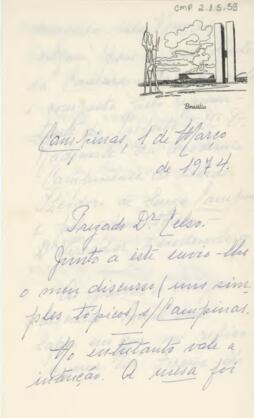 CMP 2.1.5.58
Brasília
Campinas, 1 de Março
de 1974.
Prezado Dr. Celso.
Junto a este envio-lhe
o meu discurso (uns sim-
ples tópicos) s/ Campinas.
No entretanto vale a
intenção. A mesa foi